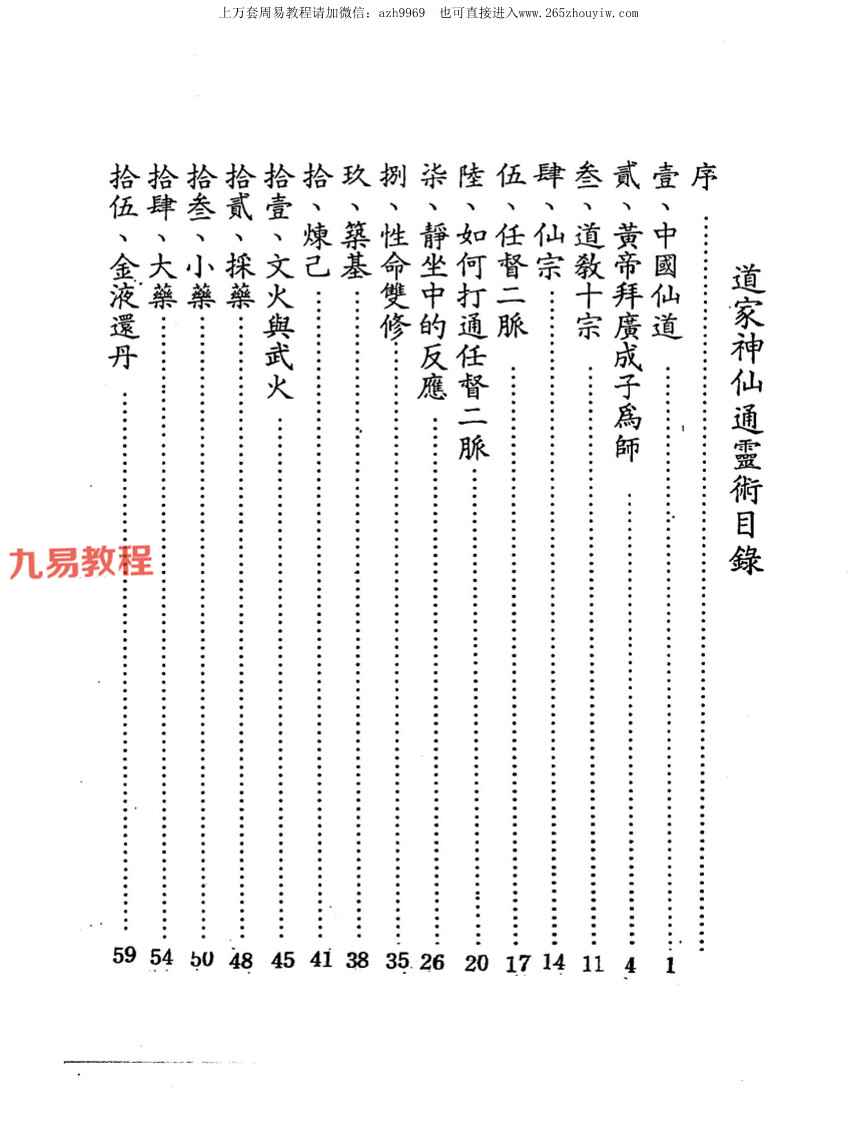 上万套周易教程请加微信：azh9969　也可直接进入www.265zhouyiw.com
道家神仙通靈術目錄
序……
壹、中國仙道……1
貳、黃帝拜廣成子爲師……4
叁、道教十宗……11
肆、仙宗……14
伍、任督二脈……17
陸、如何打通任督二脈……20
柒、靜坐中的反應……26
捌、性命雙修……35
玖、築基……38
拾、煉己……41
拾壹、文火與武火……45
拾貳、採藥……48
拾叁、小藥……50
拾肆、大藥……54
拾伍、金液還丹……59
九易教程